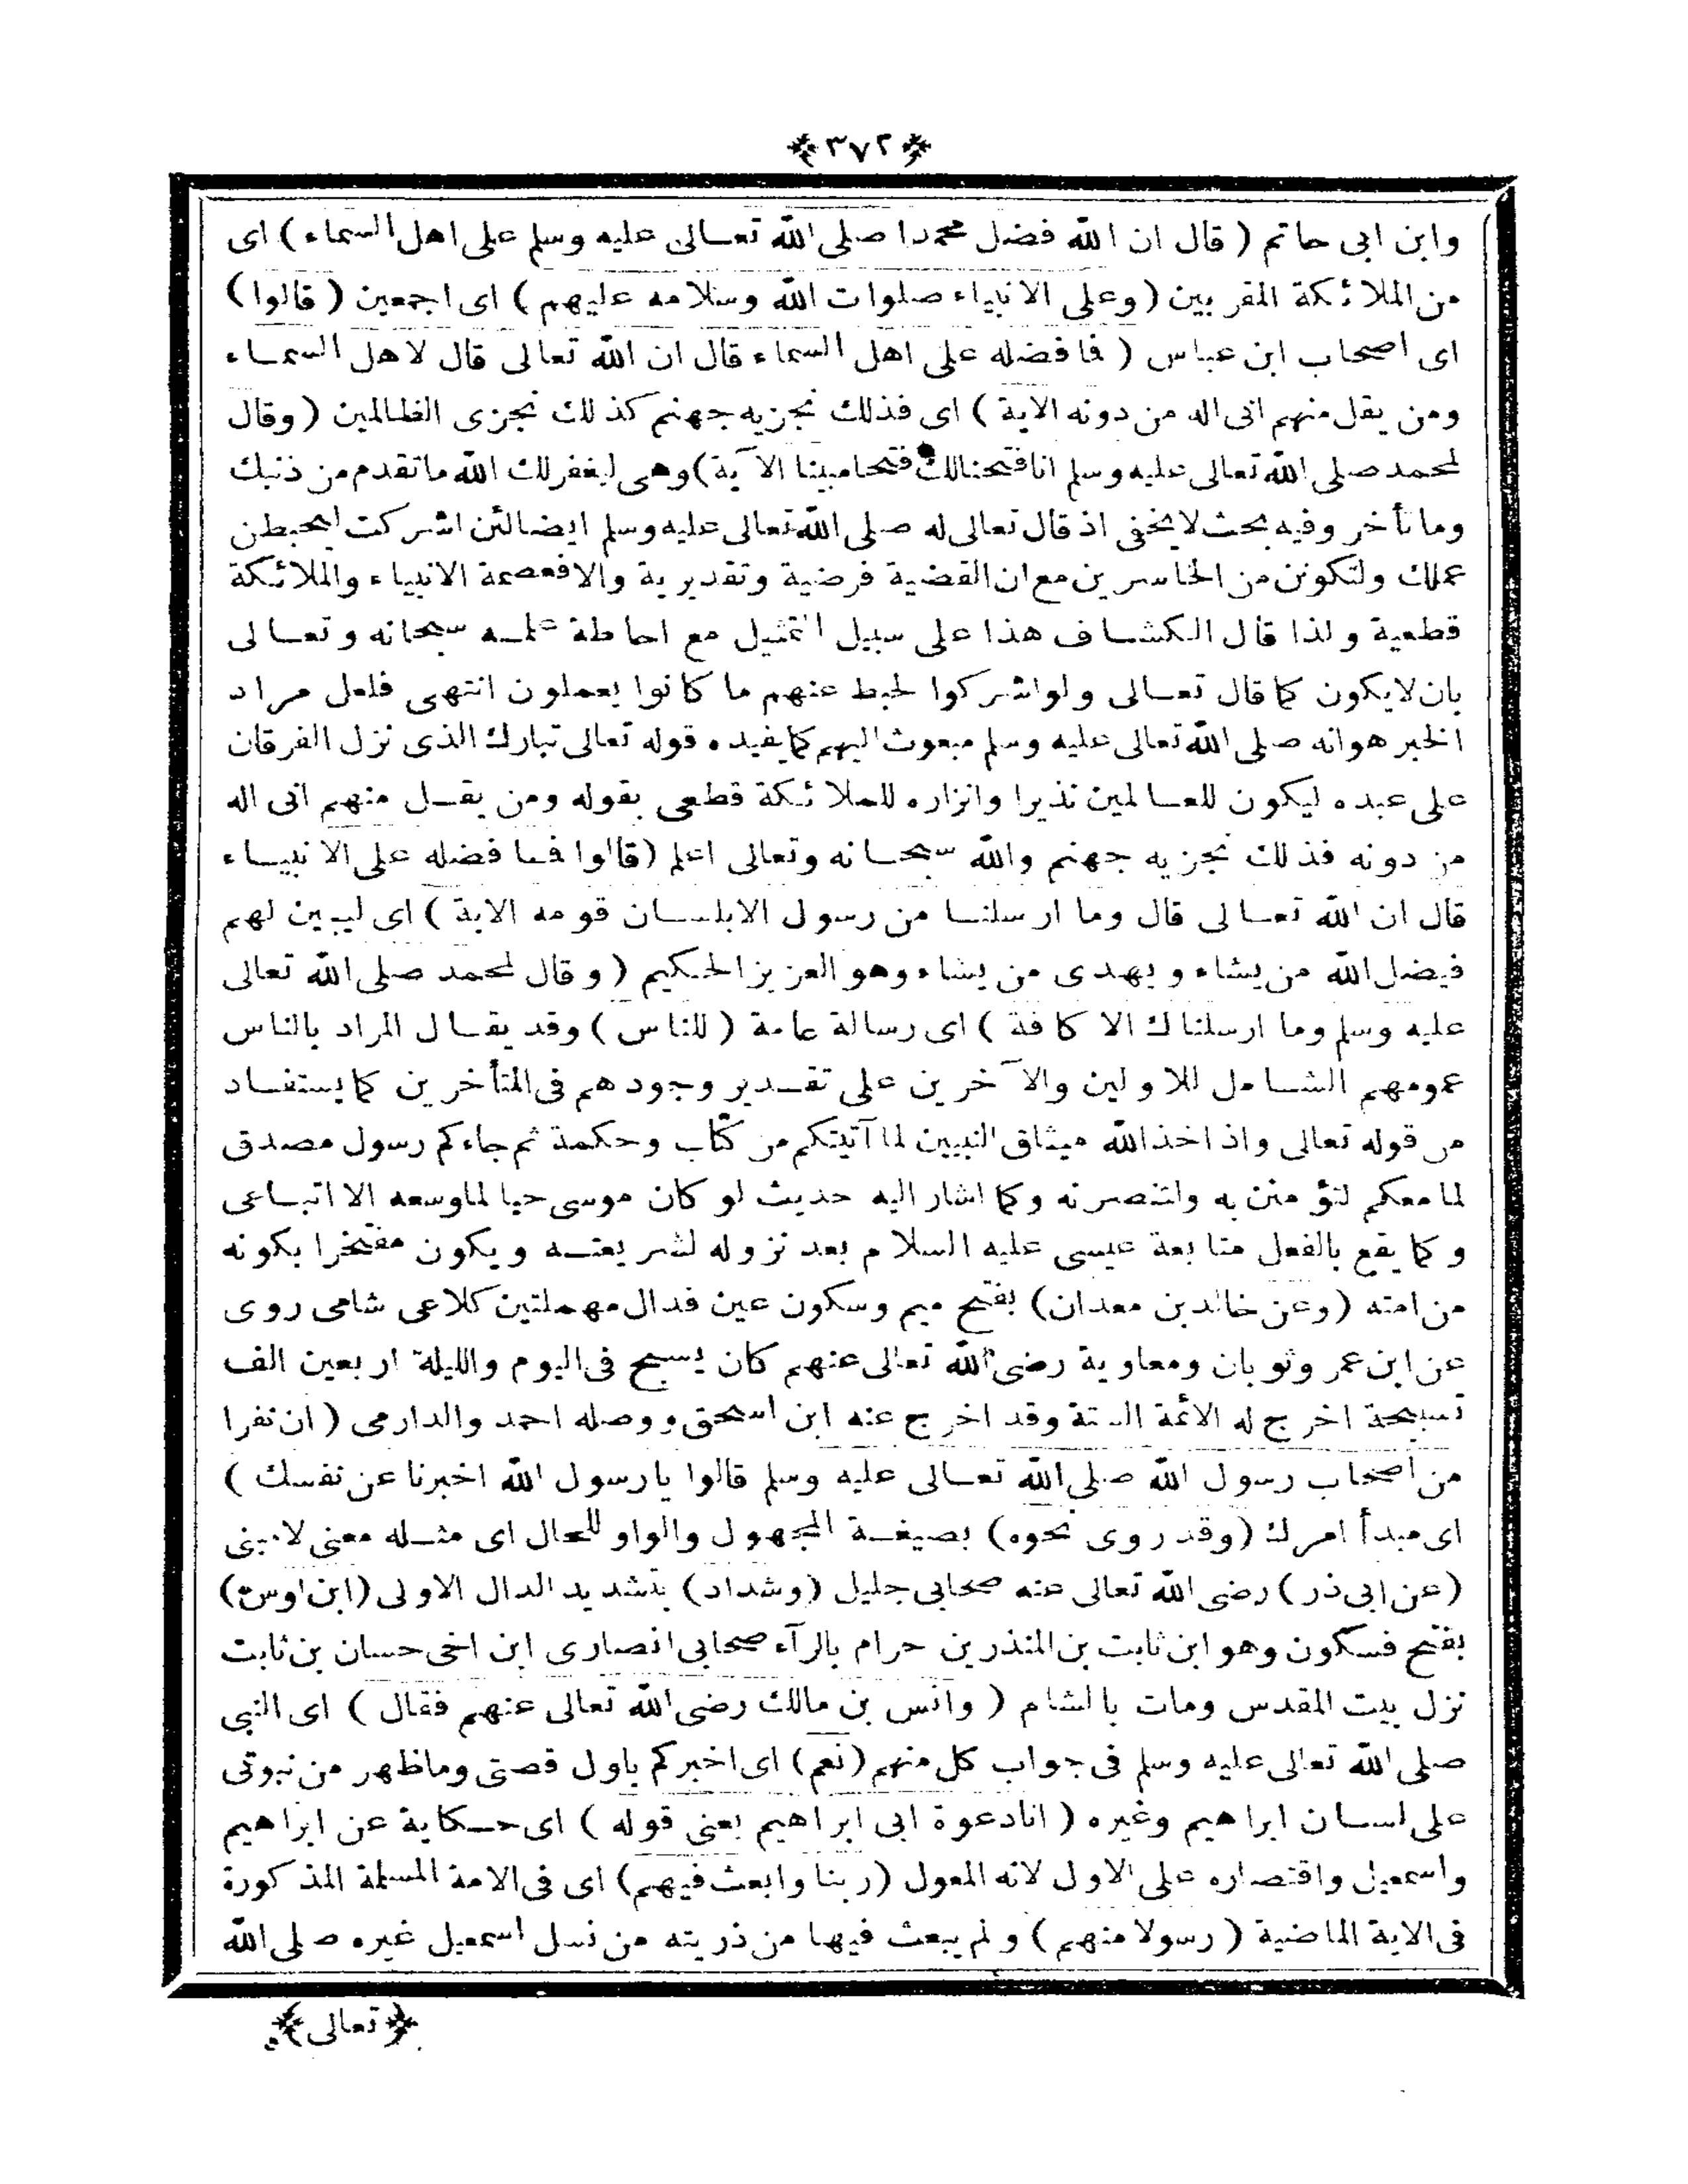 ﴿٣٧٢﴾
وابن ابى حاتم ( قال ان الله فضل محمدا صلى الله تعالى عليه وسلم على اهل السماء ) اى
من الملائكة المقربين ( وعلى الانبياء صلوات الله وسلامه عليهم ) اى اجمعين ( قالوا )
اى اصحاب ابن عباس ( فافضله على اهل السماء قال ان الله تعالى قال لاهل السماء
ومن يقل منهم انى اله من دونه الاية ) اى فذلك نجزيه جهنم كذلك نجزى الظالمين ( وقال
لمحمد صلى الله تعالى عليه وسلم انا فتحنالك فتحا مبينا الآية ) وهى ليغفر لك الله ما تقدم من ذنبك
وما تأخر وفيه بحث لا يخفى اذ قال تعالى له صلى الله تعالى عليه وسلم ايضا لئن اشركت ليحبطن
عملك ولتكونن من الخاسرين مع ان القضية فرضية وتقديرية والا فعصمة الانبياء والملائكة
قطعية ولذا قال الكشاف هذا على سبيل التمثيل مع احاطة علمه سبحانه وتعالى
بان لايكون كما قال تعالى ولو اشركوا لحبط عنهم ما كانوا يعملون انتهى فلعل مراد
الخبر هو انه صلى الله تعالى عليه وسلم مبعوث اليهم كما يفيده قوله تعالى تبارك الذى نزل الفرقان
على عبده ليكون للعالمين نذيرا وانزاره للملائكة قطعى بقوله ومن يقل منهم انى اله
من دونه فذلك نجزيه جهنم والله سبحانه وتعالى اعلم ( قالوا فما فضله على الانبياء
قال ان الله تعالى قال وما ارسلنا من رسول الابلسان قومه الاية ) اى ليبين لهم
فيضل الله من يشاء ويهدى من يشاء وهو العزيز الحكيم ( وقال لمحمد صلى الله تعالى
عليه وسلم وما ارسلناك الا كافة ) اى رسالة عامة ( للناس ) وقد يقال المراد بالناس
عمومهم الشامل للاولين والآخرين على تقدير وجودهم فى المتأخرين كما يستفاد
من قوله تعالى واذ اخذ الله ميثاق النبيين لما آتيتكم من كتاب وحكمة ثم جاءكم رسول مصدق
لما معكم لتؤمنن به ولتنصرنه وكما اشار اليه حديث لو كان موسى حيا لما وسعه الا اتباعى
وكما يقع بالفعل متابعة عيسى عليه السلام بعد نزوله لشريعته ويكون مفتخرا بكونه
من امته ( وعن خالد بن معدان ) بفتح ميم وسكون عين فدال مهملتين كلاعى شامى روى
عن ابن عمر وثوبان ومعاوية رضى الله تعالى عنهم كان يسبح فى اليوم والليلة اربعين الف
تسبيحة اخرج له الائمة الستة وقد اخرج عنه ابن اسحق ووصله احمد والدارمى ( ان نفرا
من اصحاب رسول الله صلى الله تعالى عليه وسلم قالوا يا رسول الله اخبرنا عن نفسك )
اى مبدأ امرك ( وقد روى نحوه ) بصيغة المجهول والواو للحال اى مثله معنى لا مبنى
( عن ابى ذر ) رضى الله تعالى عنه صحابى جليل ( وشداد ) بتشديد الدال الاولى ( ابن اوس )
بفتح فسكون وهو ابن ثابت بن المنذر بن حرام بالرآء صحابى انصارى ابن اخى حسان بن ثابت
نزل بيت المقدس ومات بالشام ( وانس بن مالك رضى الله تعالى عنهم فقال ) اى النبى
صلى الله تعالى عليه وسلم فى جواب كل منهم ( نعم ) اى اخبركم باول قصتى وماظهر من نبوتى
على لسان ابراهيم وغيره ( انا دعوة ابى ابراهيم يعنى قوله ) اى حكاية عن ابراهيم
واسمعيل واقتصاره على الاول لانه المعول ( ربنا وابعث فيهم ) اى فى الامة المسلمة المذكورة
فى الاية الماضية ( رسولا منهم ) ولم يبعث فيها من ذريته من نسل اسمعيل غيره صلى الله
﴿تعالى﴾